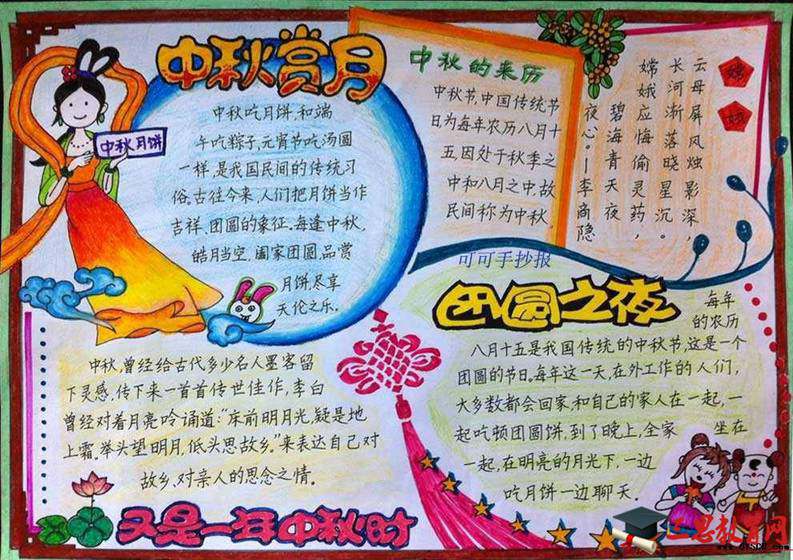 中秋赏月
中秋月饼
中秋吃月饼,和端
午吃粽子,元宵节吃汤圆
一样,是我国民间的传统习
俗。古往今来,人们把月饼当作
吉祥、团圆的象征。每逢中秋,
皓月当空,阖家团圆,品赏
月饼尽享
天伦之乐。
中秋的来历
中秋节,中国传统节
日为每年农历八月十
五,因处于秋季之
中和八月之中,故
民间称为中秋。
嫦
娥
云母屏风烛影深,
长河渐落晓星沉。
嫦娥应悔偷灵药,
碧海青天夜
夜心。—李商隐
可可手抄报
团圆之夜
每年
的农历
八月十五是我国传统的中秋节,这是一个
团圆的节日。每年这一天,在外工作的人们,
大多数都会回家,和自己的家人在一起,一
起吃顿团圆饼,到了晚上,全家 坐在
一起,在明亮的月光下,一边
吃月饼一边聊天.
中秋,曾经给古代多少名人墨客留
下灵感,传下来一首首传世佳作,李白
曾经对着月亮吟诵道:“床前明月光,疑是地
上霜。举头望明月,低头思故乡。”来表达自己对
故乡,对亲人的思念之情。
又是一年中秋时
三思教育网